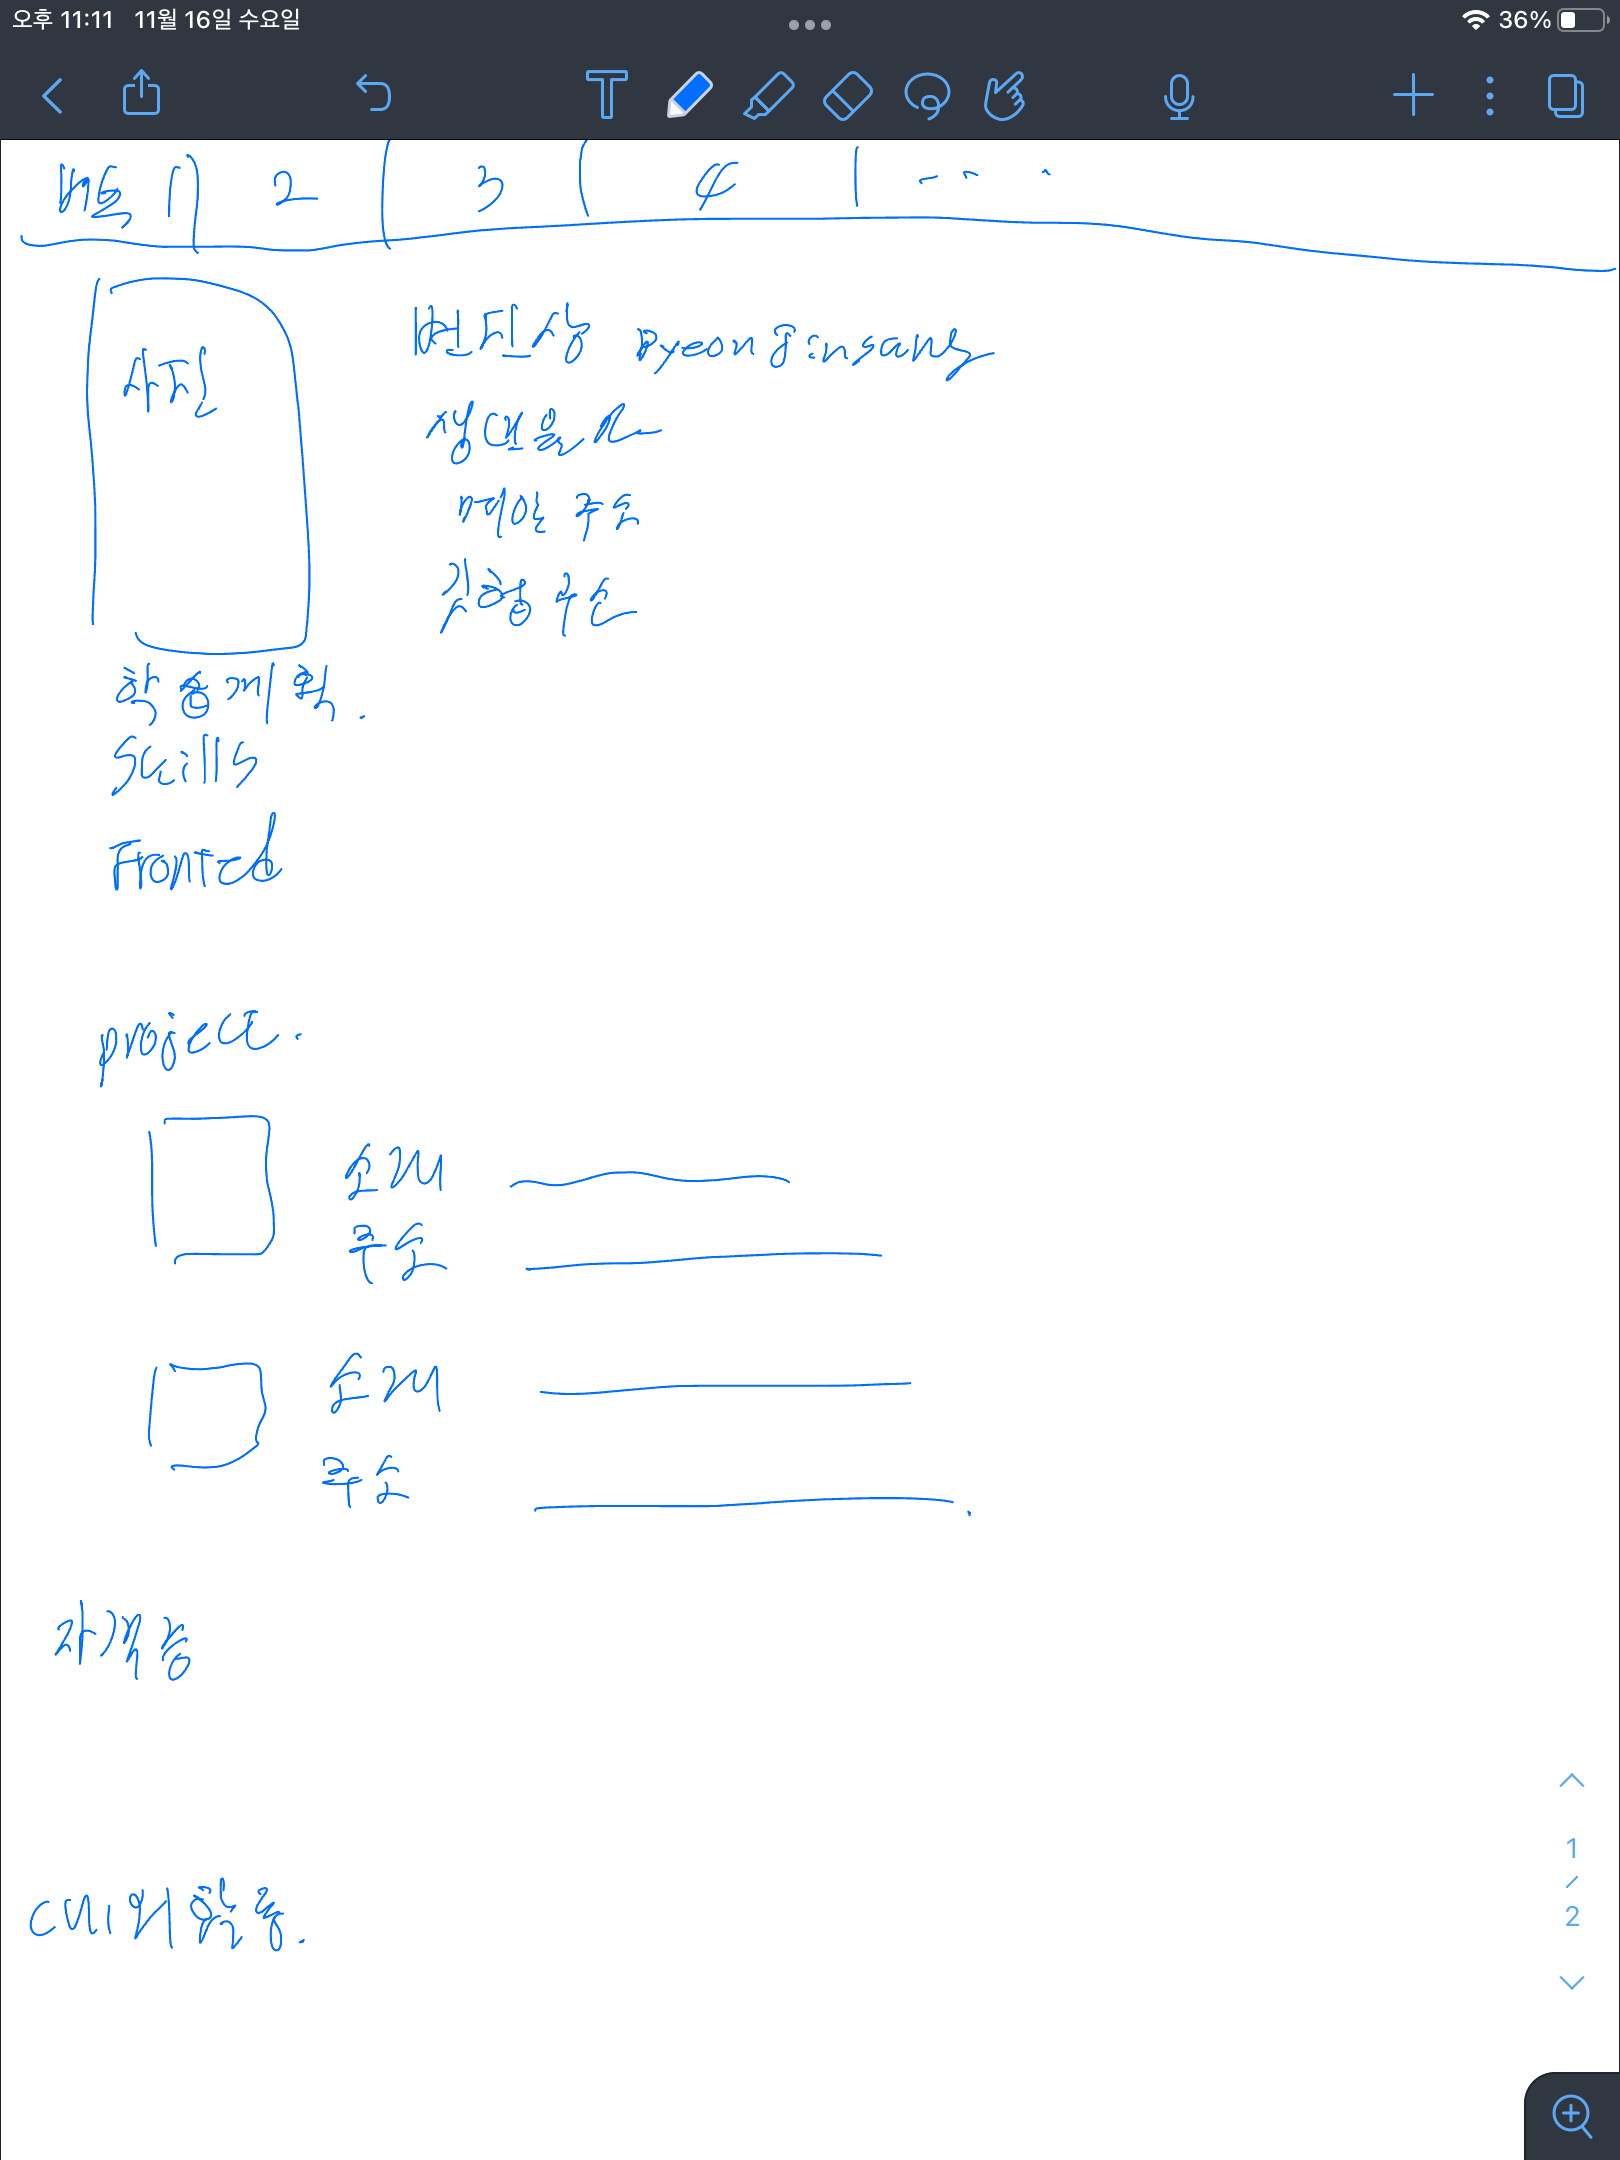 오후 11:11 11월 16일 수요일 36%
버튼 1 2 3 4 ...
사진
변진상 Byeonjinsang
생년월일
메일 주소
깃헙 주소
학습계획.
Skills
Fronted
project.
소개
주소
소개
주소
자격증
대외활동.
1
/
2